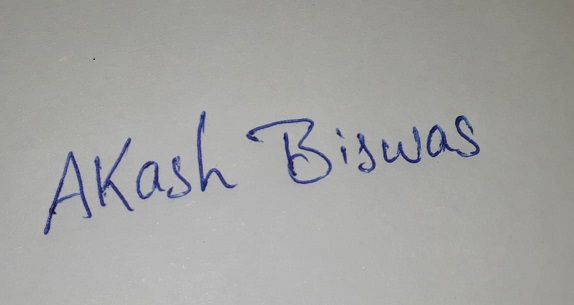 Akash Biswas